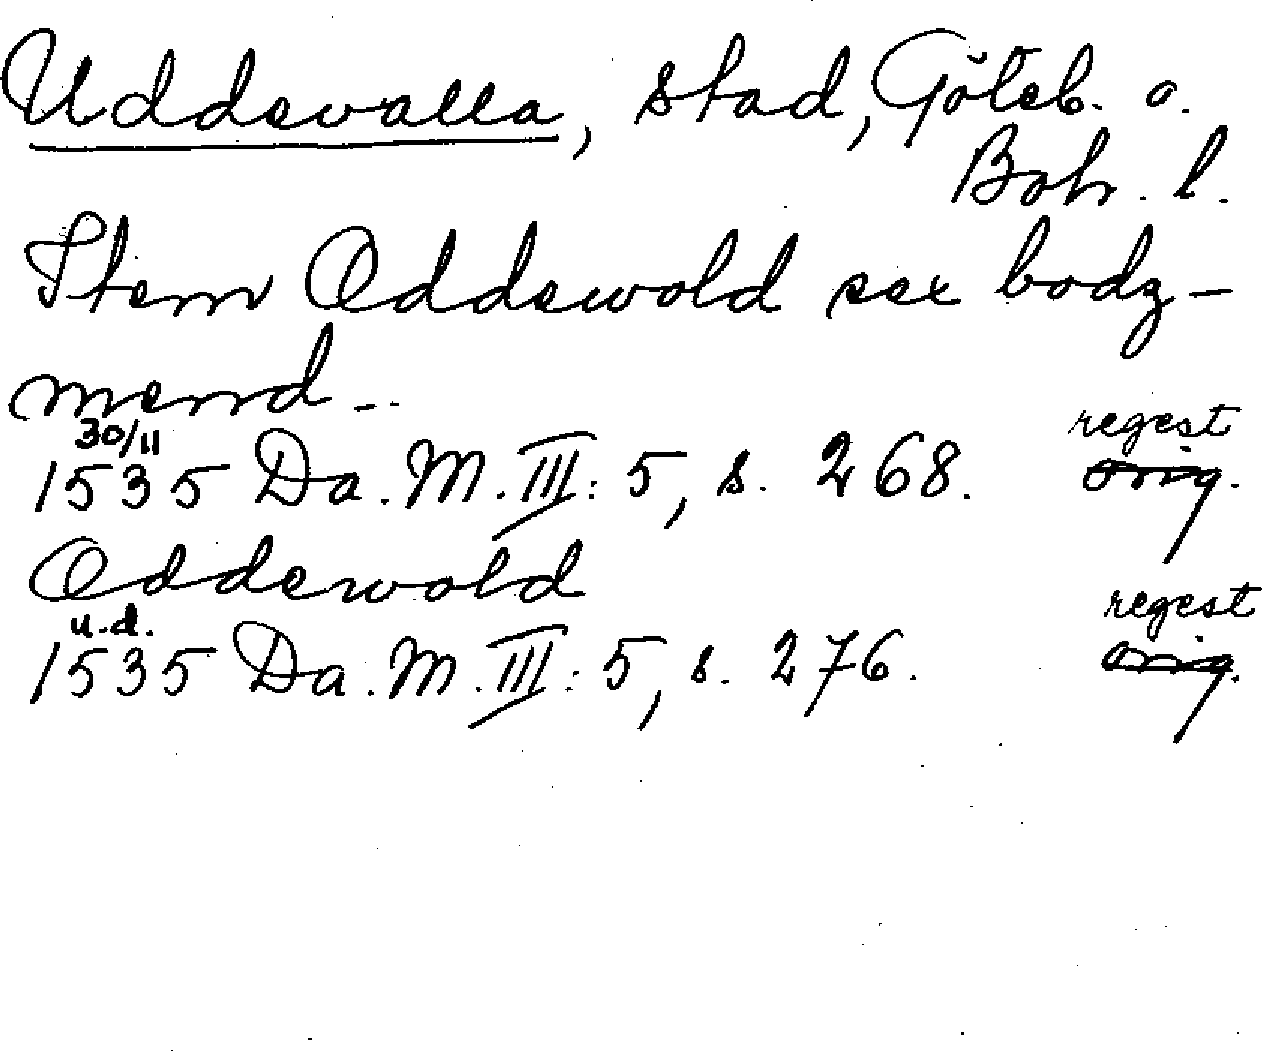 Uddevalla, stad, Göteb. o.
Boh. l.
Item Oddewold sex bodz-
mend --
30/11 regest
1535 Da. M. III: 5, s. 268. orig.
Oddewold
u.d. regest
1535 Da. M. III: 5, s. 276. orig.